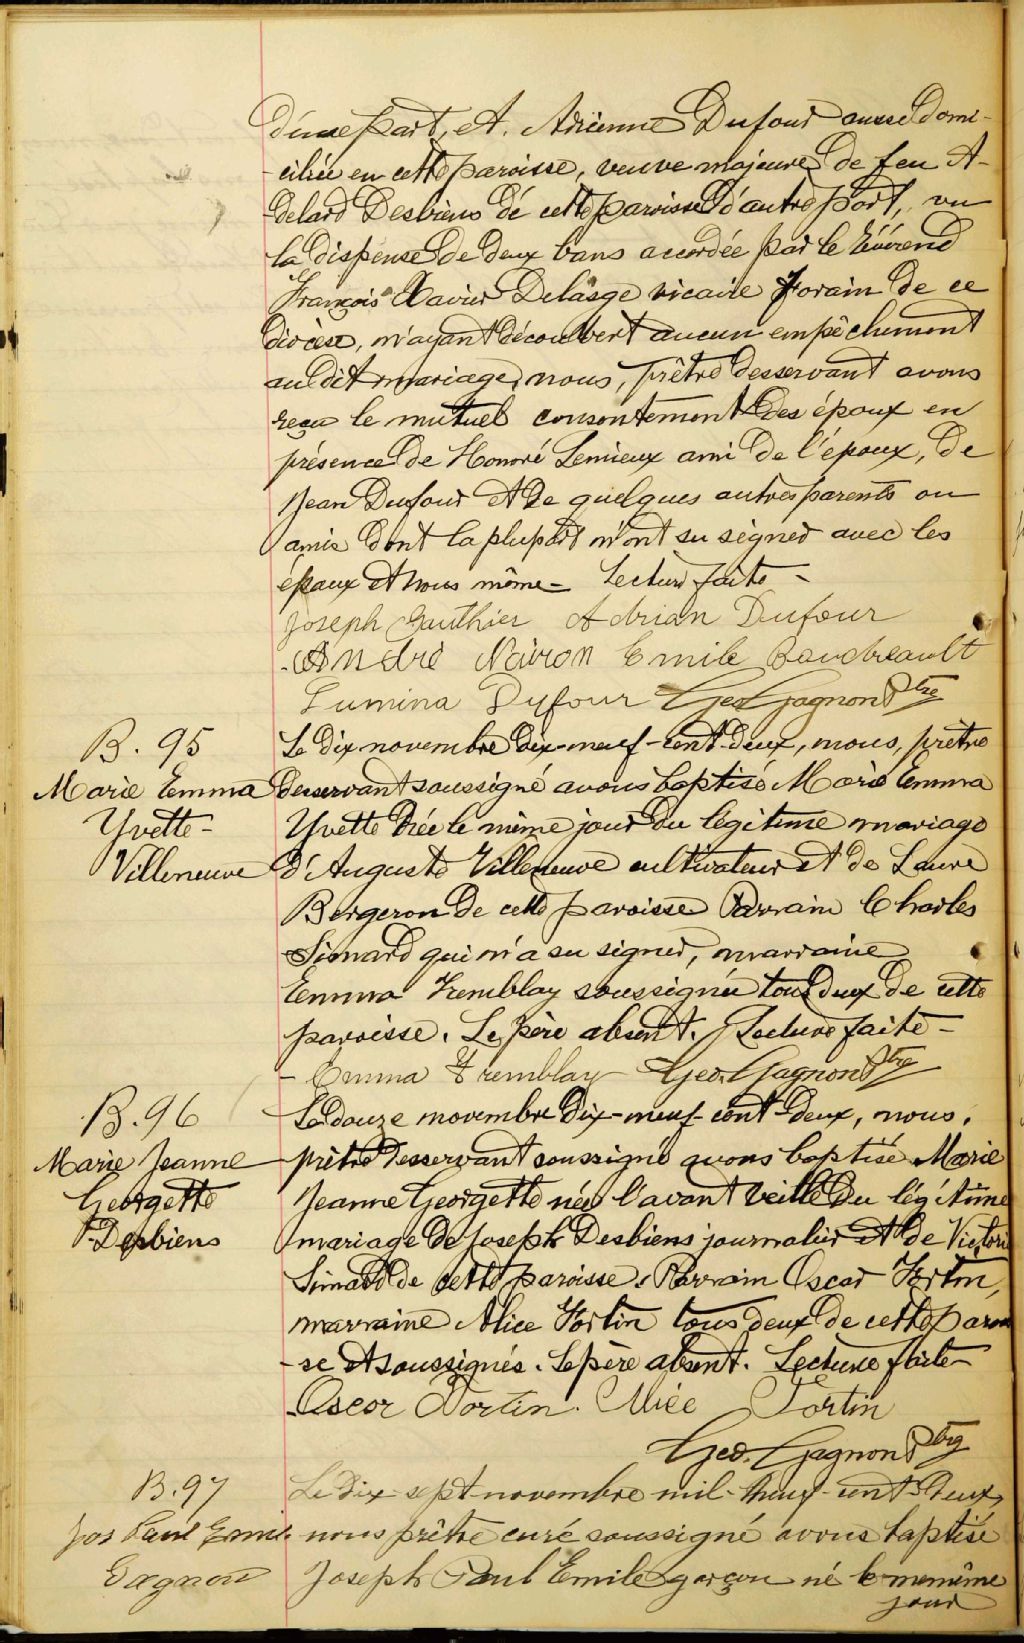 d'une part, et. Adrienne Dufour aussi domi-
-ciliée en cette paroisse, veuve majeure de feu A-
-delard Desbiens de cette paroisse d'autre part, vu
la dispense de deux bans accordée par le Révérend
François Xavier Delâge vicaire forain de ce
diocèse, n'ayant découvert aucun empêchement
au dit mariage, nous, prêtre desservant avons
reçu le mutuel consentement des époux en
présence de Honoré Lemieux ami de l'époux, de
Jean Dufour et de quelques autres parents ou
amis dont la plupart n'ont su signer avec les
époux et nous même - Lecture faite -
Joseph Gauthier Adrian Dufour
André Neiron Emile Boudreault
Lumina Dufour Geo. Gagnon Ptre
B. 95
Marie Emma
Yvette -
Villeneuve
Le dix novembre dix-neuf-cent-deux, nous, prêtre
desservant soussigné avons baptisé Marie Emma
Yvette née le même jour du légitime mariage
d'Auguste Villeneuve cultivateur et de Laure
Bergeron de cette paroisse Parrain Charles
Simard qui n'a su signer, marraine
Emma Tremblay soussignée tous deux de cette
paroisse. Le père absent. Lecture faite -
- Emma Tremblay Geo. Gagnon Ptre
B. 96
Marie Jeanne
Georgette
Desbiens
Le douze novembre dix-neuf-cent-deux, nous,
prêtre desservant soussigné avons baptisé Marie
Jeanne Georgette née l'avant veille du légitime
mariage de Joseph Desbiens journalier et de Victori
Simard de cette paroisse. Parrain Oscar Fortin,
marraine Alice Fortin tous deux de cette parois
-se et soussignés. Le père absent. Lecture faite -
Oscar Fortin. Alice Fortin
Geo. Gagnon Ptre
B. 97
Jos Paul Emile
Gagnon
Le dix-sept novembre mil-neuf-cent-deux,
nous prêtre curé soussigné avons baptisé
Joseph Paul Emile garçon né le même
jour